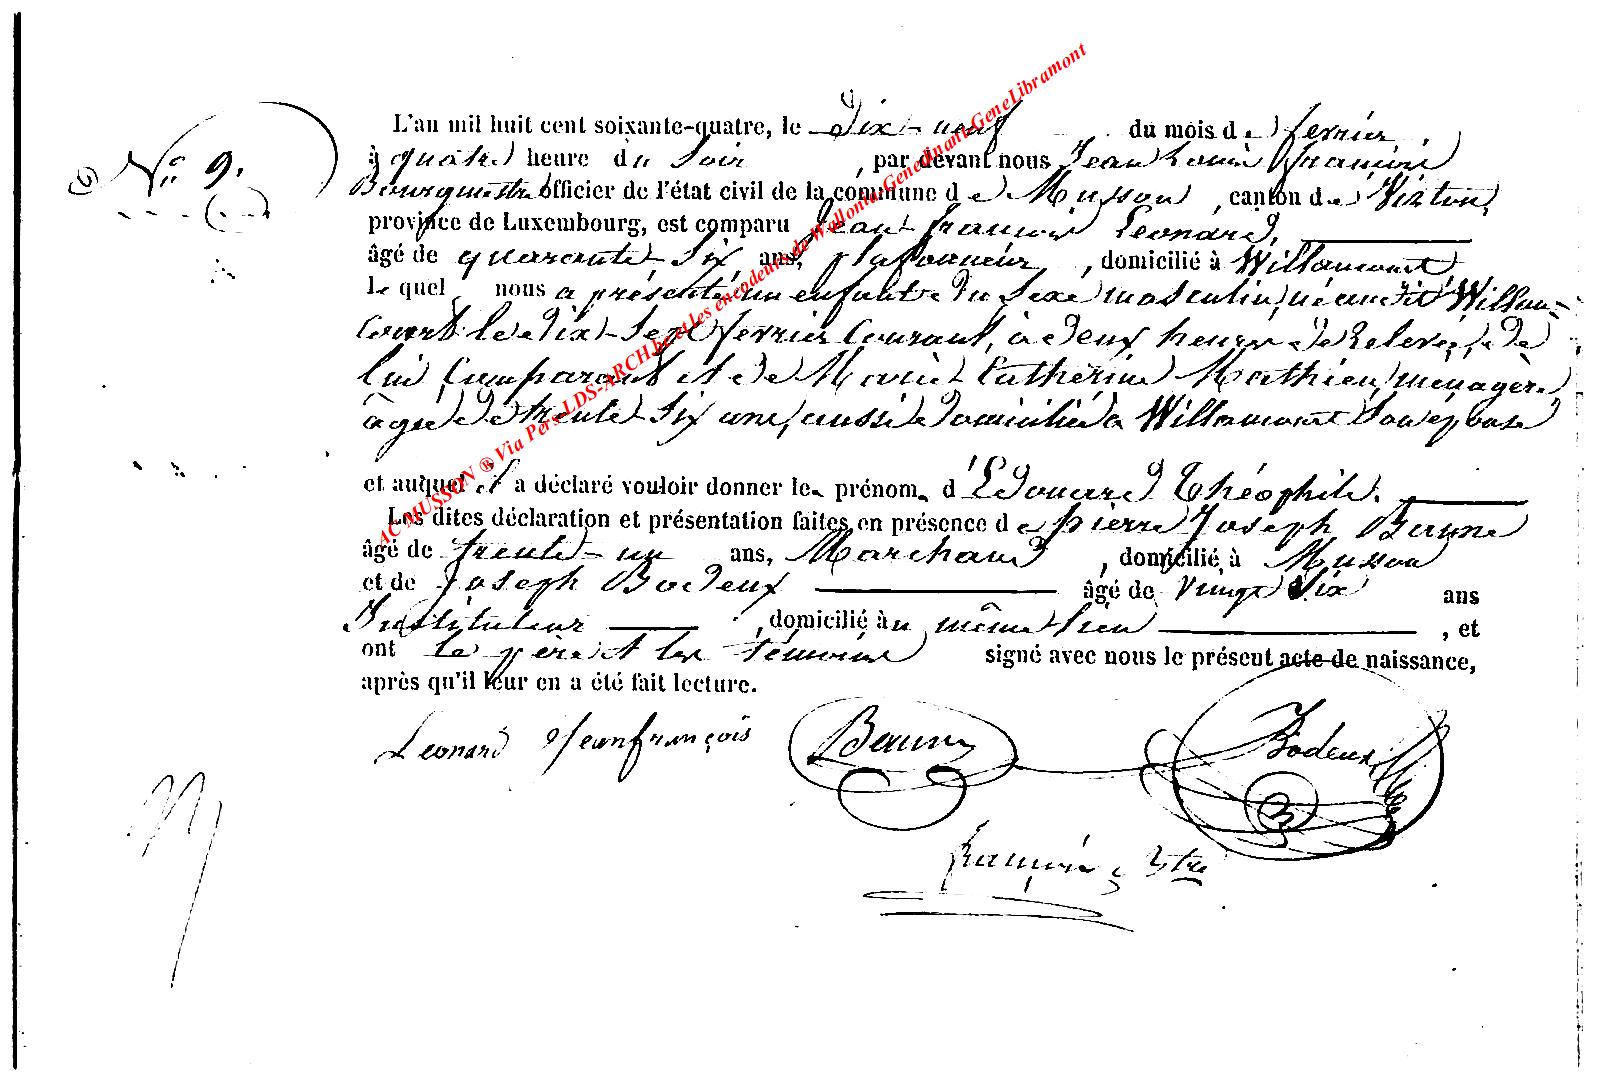 L'an mil huit cent soixante-quatre, le dix-neuf du mois de fevrier,
N° 9.
à quatre heure du soir, par devant nous Jean Louis François
Bourgmestre officier de l'état civil de la commune de Musson, canton de Virton,
province de Luxembourg, est comparu Jean-françois Leonard,
âgé de quarante-six ans, plafonneur, domicilié à Willancourt
le quel nous a présenté un enfant du sexe masculin, né audit Willan-
court le dix-sept fevrier courant, à deux heures de relevée, de
lui comparant et de Marie-Catherine Mathieu, ménagère,
âgée de trente-six ans, aussi domiciliée à Willancourt son épouse
et auquel il a déclaré vouloir donner les prénom d'Edouard Théophile.
Les dites déclaration et présentation faites en présence de pierre Joseph
âgé de trente-un ans, Marchand, domicilié à Musson
et de Joseph Bodeux âgé de vingt six ans
Instituteur, domicilié au même lieu, et
ont le père et les témoins signé avec nous le présent acte de naissance,
après qu'il leur en a été fait lecture.
Leonard Jean françois
Bodeux
françois
AC MUSSON ® Via Pers-LDS-ARCH.be et les encodeurs de Wallonie-Genedinant-GeneLibramont